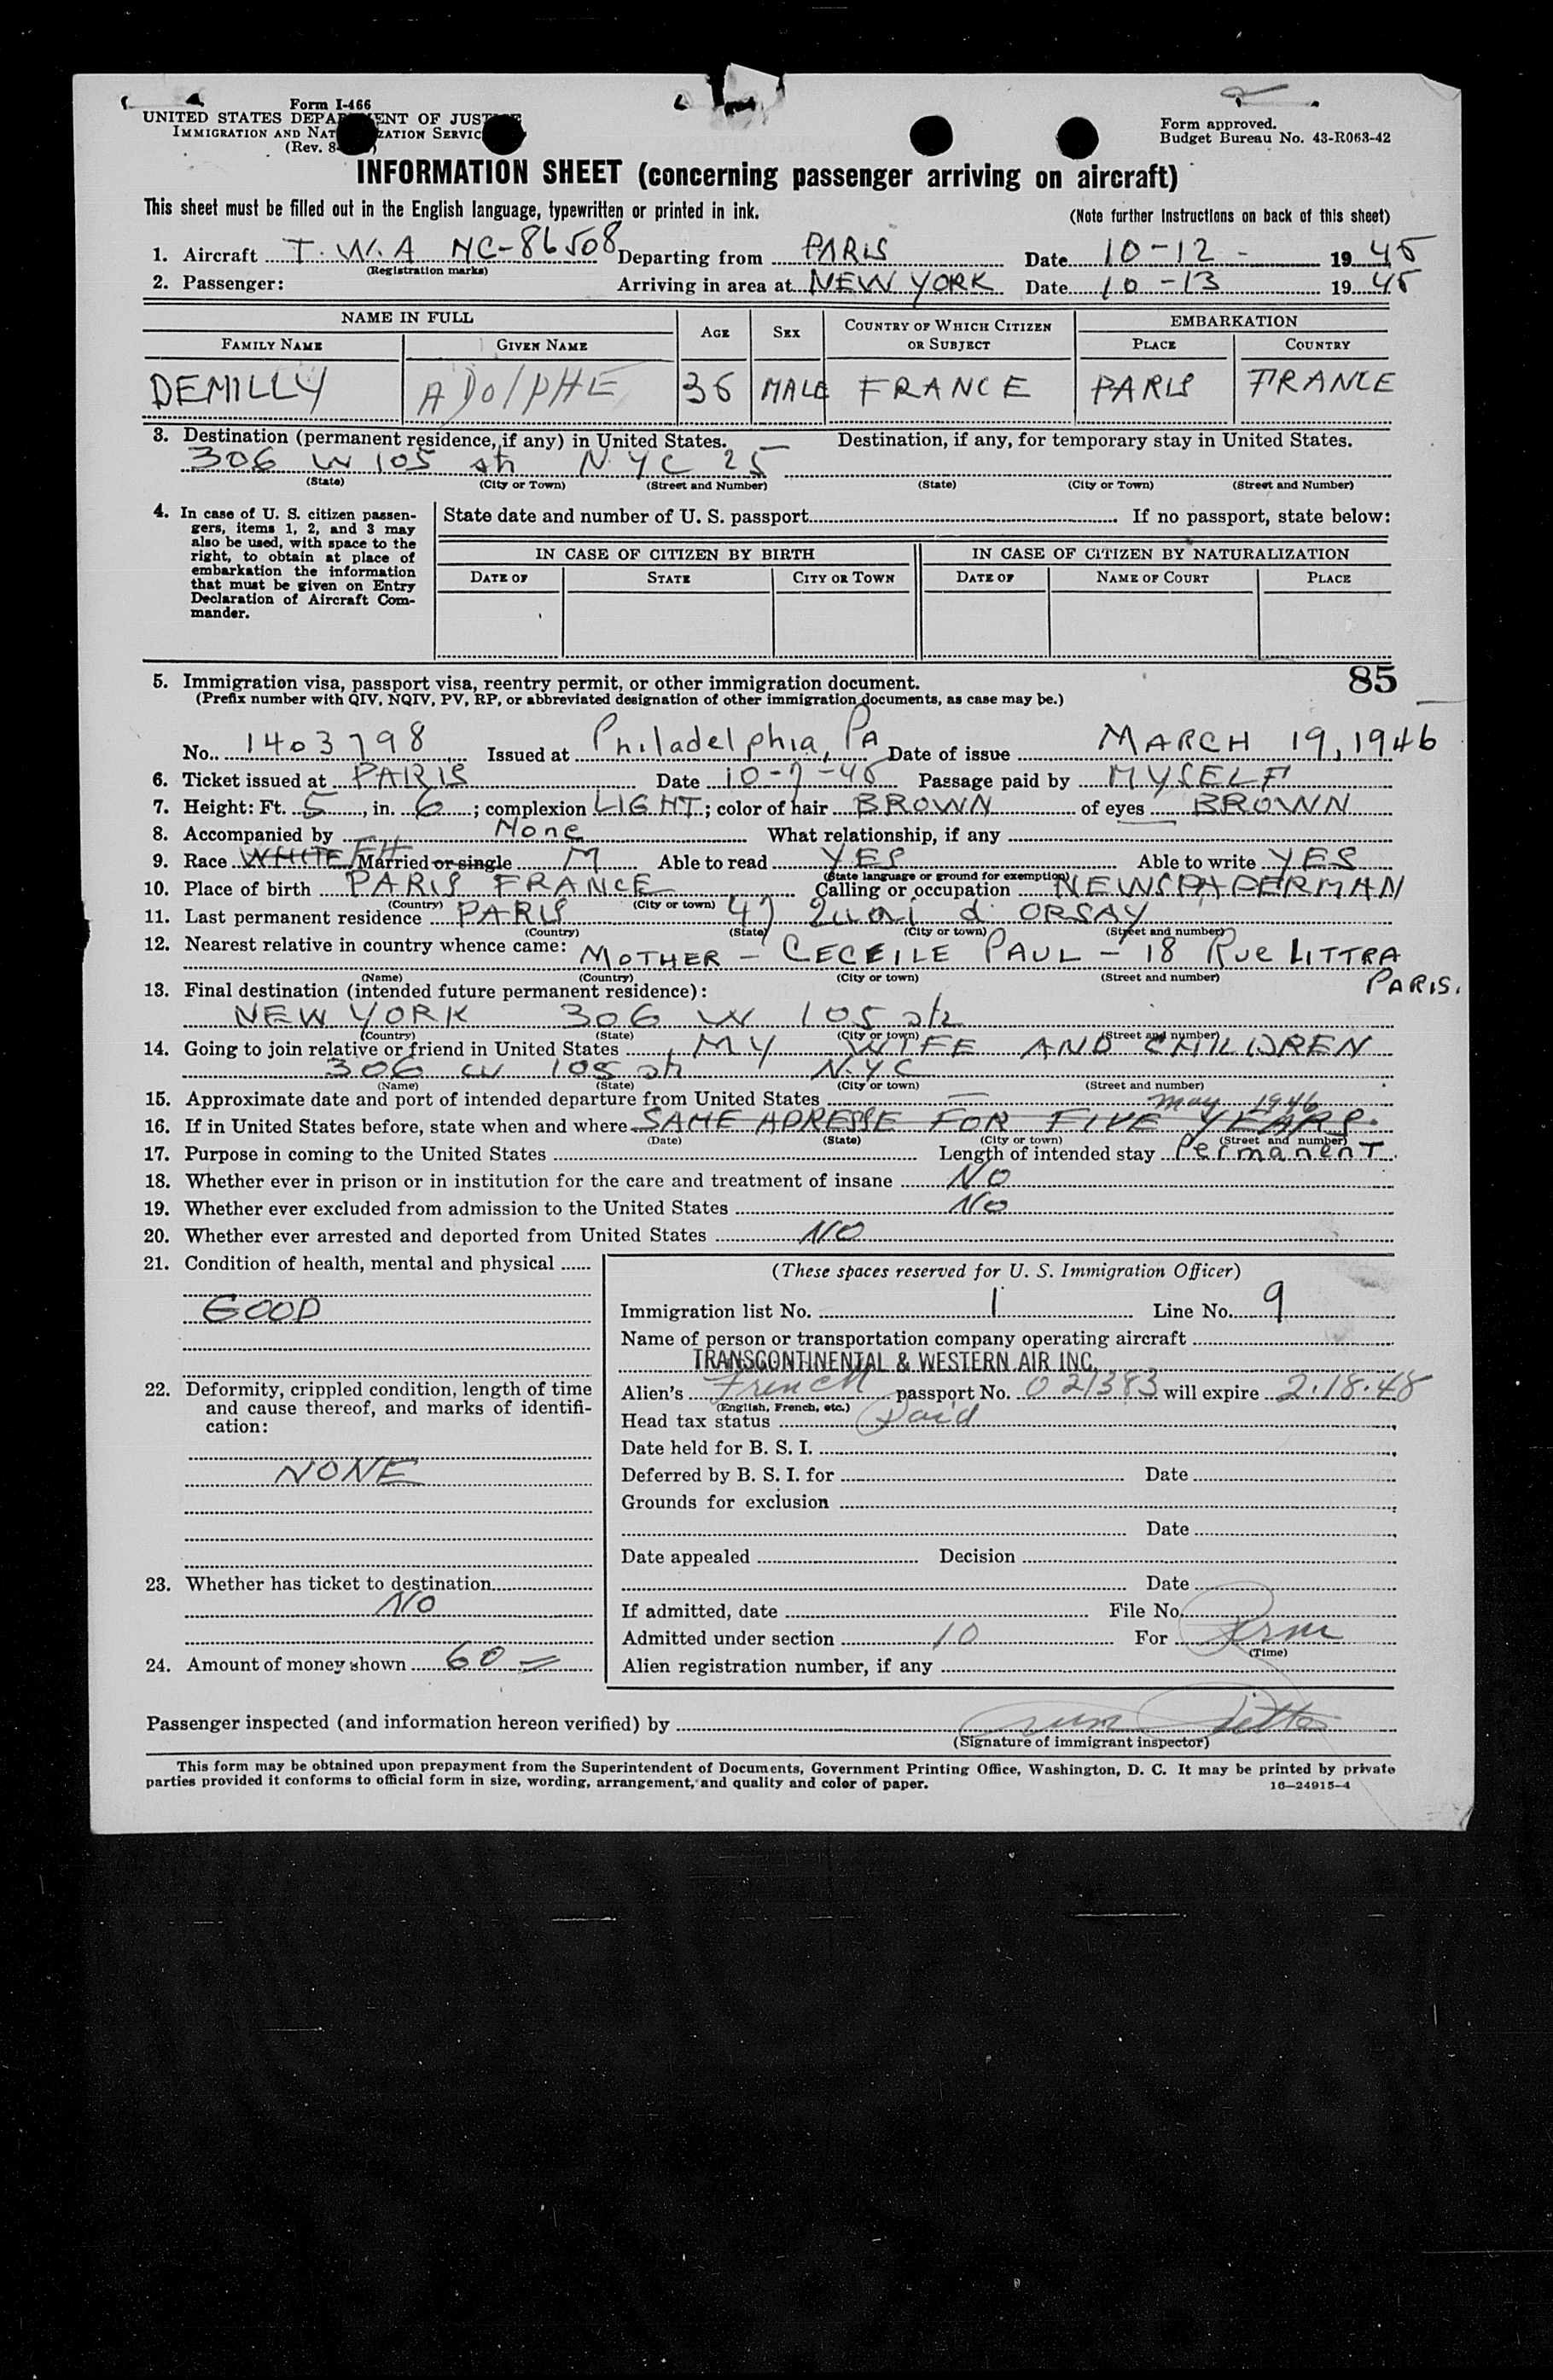 Form I-466
UNITED STATES DEPARTMENT OF JUSTICE
IMMIGRATION AND NATURALIZATION SERVICE
(Rev. 8-
Form approved.
Budget Bureau No. 43-R063-42
INFORMATION SHEET (concerning passenger arriving on aircraft)
This sheet must be filled out in the English language, typewritten or printed in ink.
(Note further instructions on back of this sheet)
1. Aircraft T.W.A NC-86508 Departing from PARIS Date 10-12- 1945
(Registration marks)
2. Passenger: Arriving in area at NEW YORK Date 10-13 1945
NAME IN FULL AGE SEX COUNTRY OF WHICH CITIZEN OR SUBJECT EMBARKATION
FAMILY NAME GIVEN NAME PLACE COUNTRY
DEMILLY ADOLPHE 36 MALE FRANCE PARIS FRANCE
3. Destination (permanent residence, if any) in United States. Destination, if any, for temporary stay in United States.
306 W 105 sh NYC 25
(State) (City or Town) (Street and Number) (State) (City or Town) (Street and Number)
4. In case of U. S. citizen passen-
gers, items 1, 2, and 3 may
also be used, with space to the
right, to obtain at place of
embarkation the information
that must be given on Entry
Declaration of Aircraft Com-
mander.
State date and number of U. S. passport If no passport, state below:
IN CASE OF CITIZEN BY BIRTH IN CASE OF CITIZEN BY NATURALIZATION
DATE OF STATE CITY OR TOWN DATE OF NAME OF COURT PLACE
85
5. Immigration visa, passport visa, reentry permit, or other immigration document.
(Prefix number with QIV, NQIV, PV, RP, or abbreviated designation of other immigration documents, as case may be.)
No. 1403798 Issued at Philadelphia, PA Date of issue MARCH 19, 1946
6. Ticket issued at PARIS Date 10-7-45 Passage paid by MYSELF
7. Height: Ft. 5, in. 6; complexion LIGHT; color of hair BROWN of eyes BROWN
8. Accompanied by None What relationship, if any
9. Race WHITE Married or single M Able to read YES Able to write YES
(State language or ground for exemption)
10. Place of birth PARIS FRANCE Calling or occupation NEWSPAPERMAN
(Country) (City or town)
11. Last permanent residence PARIS 47 Quai d ORSAY
(Country) (State) (City or town) (Street and number)
12. Nearest relative in country whence came: MOTHER - CECEILE PAUL - 18 Rue LITTRA
PARIS.
(Name) (Country) (City or town) (Street and number)
13. Final destination (intended future permanent residence):
NEW YORK 306 W 105 sh
(Country) (State) (City or town) (Street and number)
14. Going to join relative or friend in United States MY WIFE AND CHILDREN
306 W 105 sh NYC
(Name) (State) (City or town) (Street and number)
15. Approximate date and port of intended departure from United States —
May 1946
16. If in United States before, state when and where SAME ADRESSE FOR FIVE YEARS.
(Date) (State) (City or town) (Street and number)
17. Purpose in coming to the United States Length of intended stay Permanent.
18. Whether ever in prison or in institution for the care and treatment of insane NO
19. Whether ever excluded from admission to the United States No
20. Whether ever arrested and deported from United States NO
21. Condition of health, mental and physical
GOOD
22. Deformity, crippled condition, length of time
and cause thereof, and marks of identifi-
cation:
NONE
23. Whether has ticket to destination
NO
24. Amount of money shown 60 =
(These spaces reserved for U. S. Immigration Officer)
Immigration list No. 1 Line No. 9
Name of person or transportation company operating aircraft
TRANSCONTINENTAL & WESTERN AIR INC.
Alien's French passport No. 021383 will expire 2.18.48
(English, French, etc.)
Head tax status Paid
Date held for B. S. I.
Deferred by B. S. I. for Date
Grounds for exclusion
Date
Date appealed Decision
Date
If admitted, date File No.
Admitted under section 10 For Perm
(Time)
Alien registration number, if any
Passenger inspected (and information hereon verified) by
(Signature of immigrant inspector)
This form may be obtained upon prepayment from the Superintendent of Documents, Government Printing Office, Washington, D. C. It may be printed by private
parties provided it conforms to official form in size, wording, arrangement, and quality and color of paper.
16—24915-4